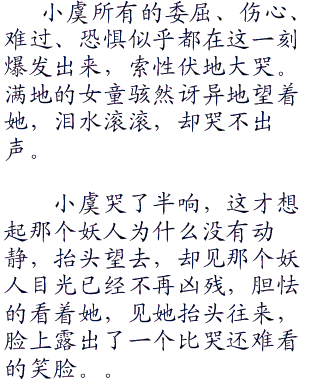 小虞所有的委屈、伤心、
难过、恐惧似乎都在这一刻
爆发出来，索性伏地大哭。
满地的女童骇然讶异地望着
她，泪水滚滚，却哭不出
声。
小虞哭了半响，这才想
起那个妖人为什么没有动
静，抬头望去，却见那个妖
人目光已经不再凶残，胆怯
的看着她，见她抬头往来，
脸上露出了一个比哭还难看
的笑脸。。